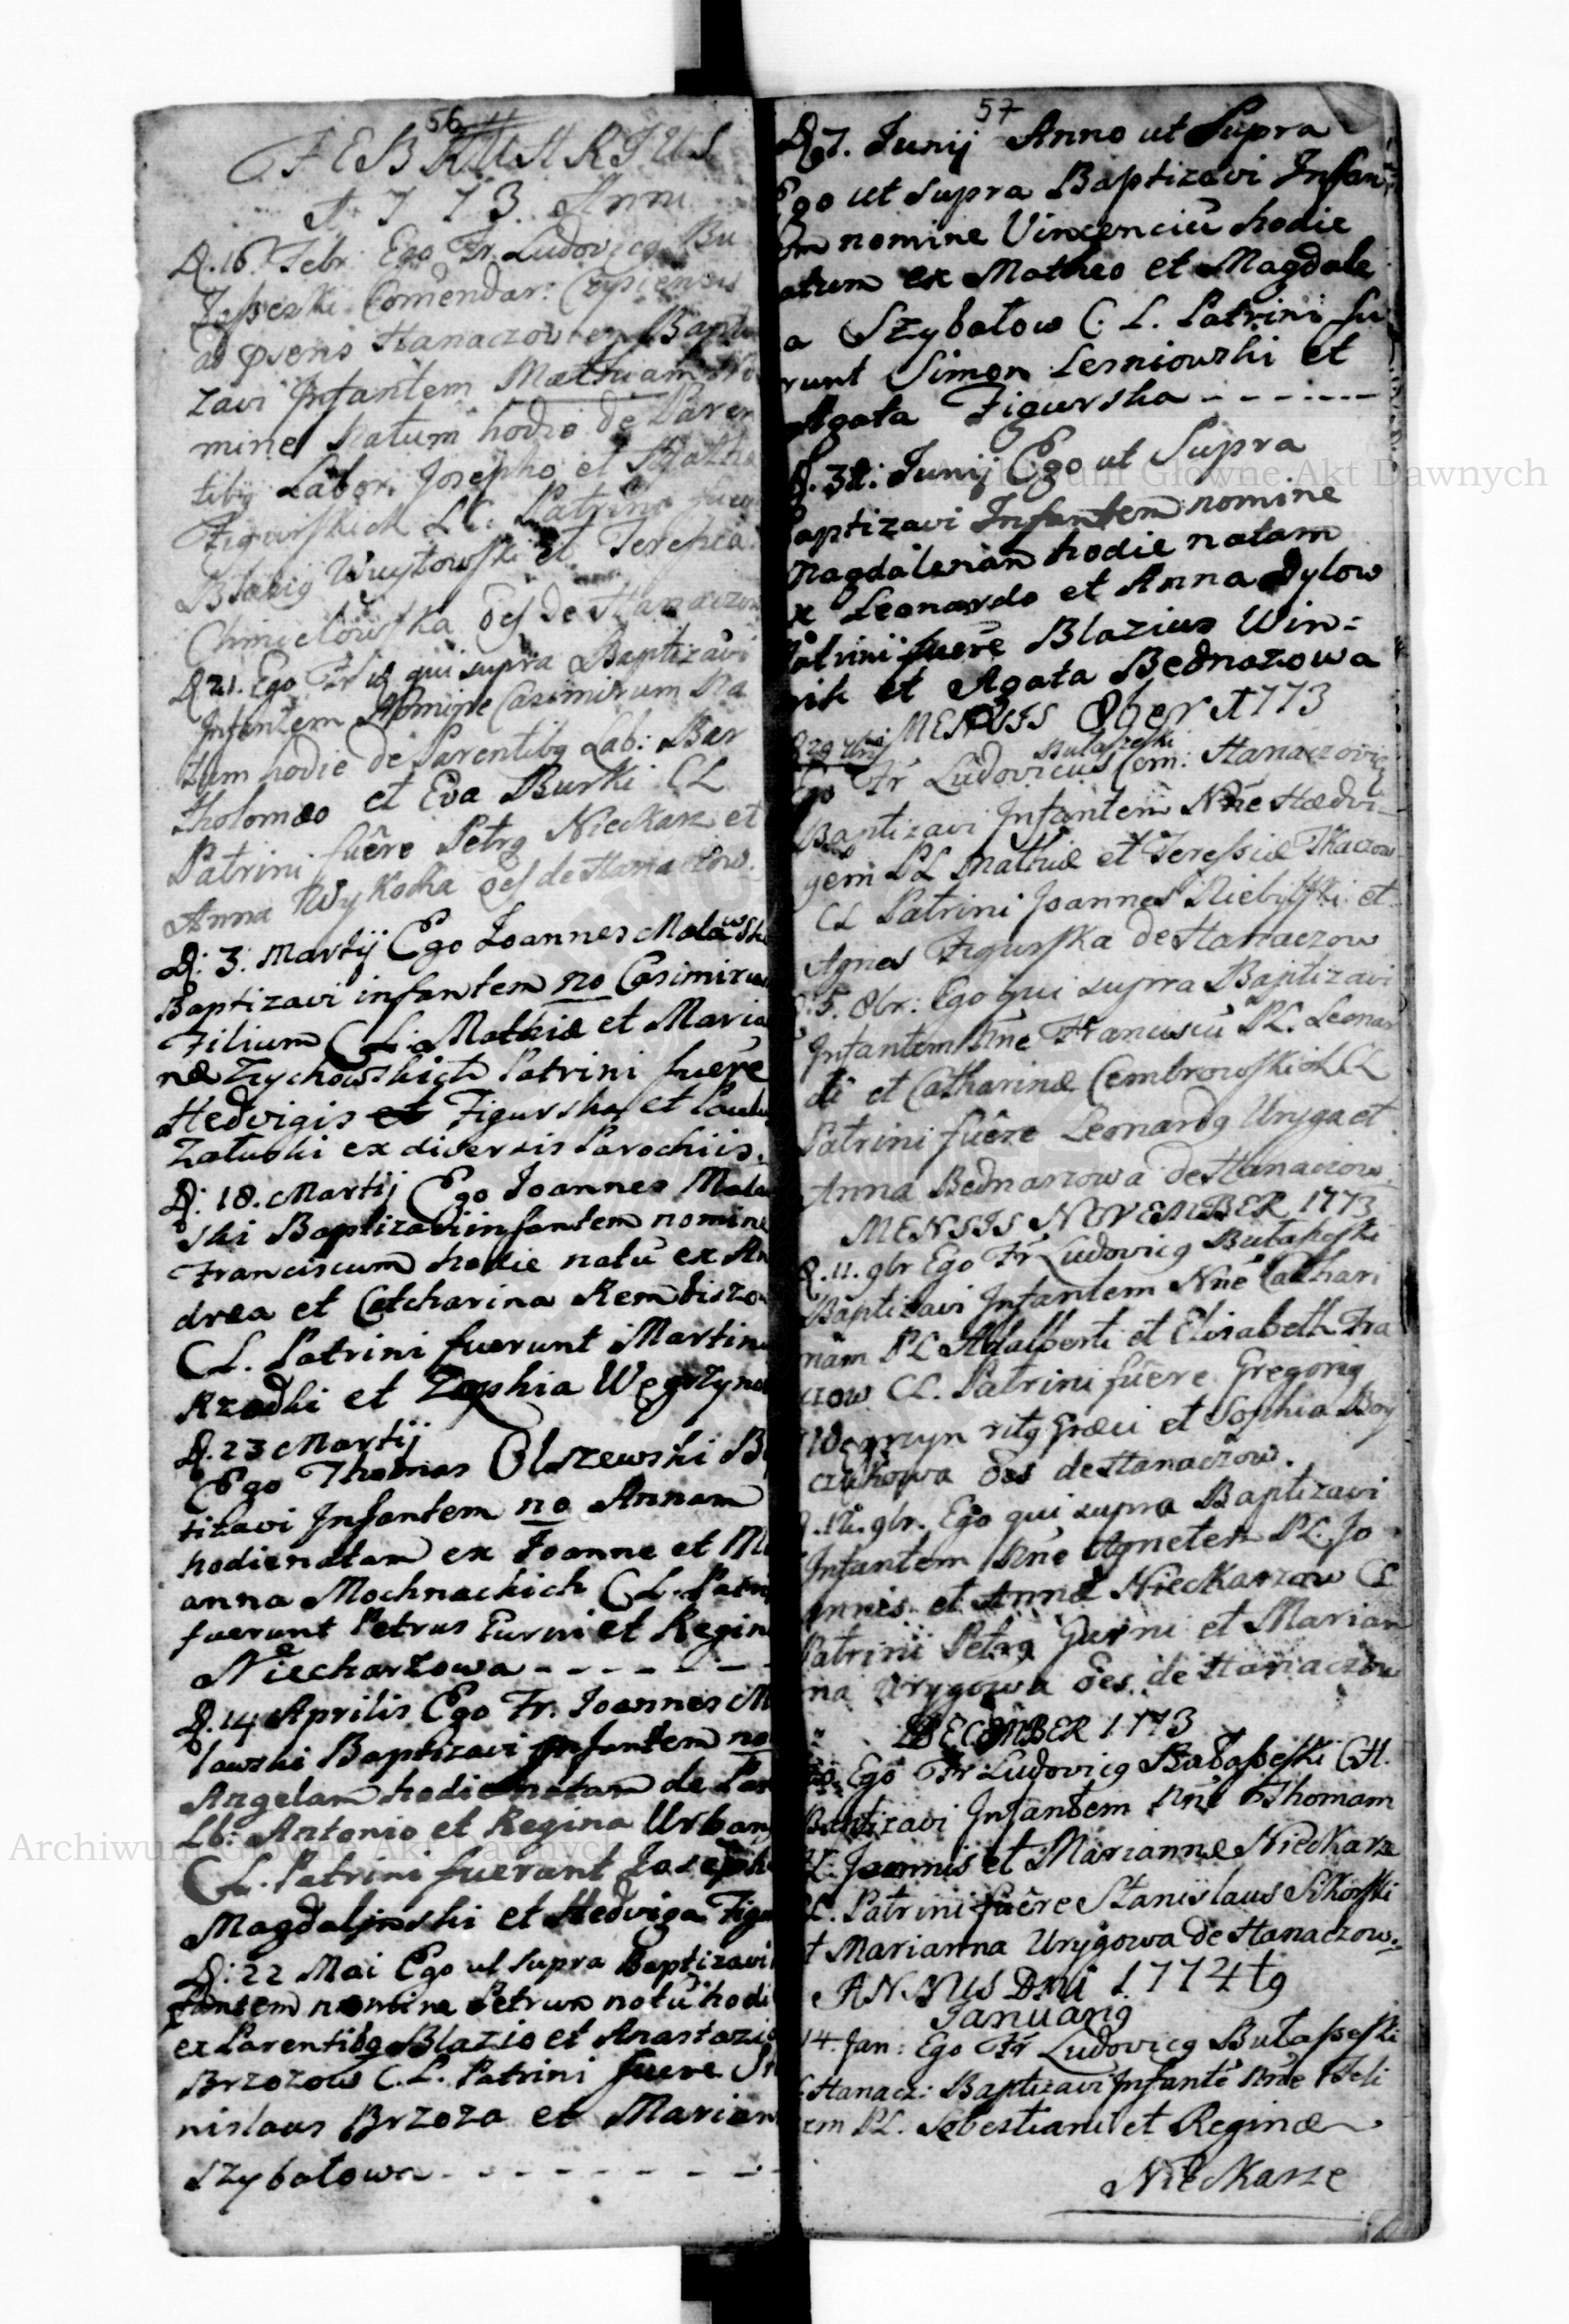 56
FEBRUARIUS
1773 Anni
D. 16. Febr: Ego Fr. Ludovicg Bu
Comendar:
Hanaczoviens Bapti
zavi Infantem Mathiam No
mine Natum hodie de Paren
tibg Labor. Josepho et Agatha
Figurskich LC. Patrini fuere
Blasig Wuytowski et Terehia
Chmielowska oes de Hanaczow
D 21. Ego Fr qui supra Baptizavi
Infantem Nomine Casimirum Na
tum hodie de Parentibg Lab: Bar
tholomeo et Eva Burki CL
Patrini fuêre Petrg Nieckarz et
Anna Wykocka oes de Hanaczow.
D: 3: Martij Ego Joannes Malawski
Baptizavi infantem no Casimirum
Filium CL. Mathiæ et Maria
næ Zychowskich Patrini fuere
Hedvigis et Figurska et Paulu
Zatuski ex diversis Parochiis.
D: 18. Martij Ego Joannes Mala
ski Baptizavi infantem nomine
Franciscum hodie natu ex An
drea et Catcharina Rembiszow
CL. Patrini fuerunt Martinu
Rzadki et Zophia Węgrzyno
D. 23 Martij
Ego Thomas Olszewski B
tizavi Infantem no Annam
hodie natam ex Joanne et M
anna Mochnackich CL. Patri
fuerunt Petrus Gurni et Regin
Niecharzowa - - - - - -
D. 14 Aprilis Ego Fr. Joannes M
lawski Baptizavi Infantem no
Angelam hodie natam de Par
Lb: Antonio et Regina Urban
CL. Patrini fuerunt Joseph
Magdalinski et Hedviga Figu
D: 22 Mai Ego ut supra Baptizavi
fantem nomine Petrum notu hodi
ex Parentibg Blazio et Anastazi
Brzozow C.L. Patrini fuere St
nislaus Brzoza et Marian
Szybatowa - - - - - - - -
57
D 7. Junij Anno ut Supra
Ego ut supra Baptizavi Infan
em nomine Vincenciu hodie
atum ex Matheo et Magdale
a Szybatow C. L. Patrini fu
runt Simon Lesniowski et
Agata Figurska - - - - - - -
Junij Ego ut Supra
aptizavi Infantem nomine
Magdalenam hodie natam
x Leonardo et Anna Dylow
Patrini fuere Blazius Win=
nik et Agata Bednazowa
MENSIS 8ber 1773
Butaszeski
Ego Fr Ludovicus Com: Hanaczovig
Baptizavi Infantem Nne Hædvi-
gem PL Mathiæ et Teressiæ Tkaczow
CL Patrini Joannes Niebilski et
Agnes Figurska de Hanaczow
D. 5. 8br: Ego qui supra Baptizavi
Infantem Nne Franciscu PL. Leonar
di et Catharinæ Cembrowskich CL
Patrini fuêre Leonardg Uryga et
Anna Bednarzowa de Hanaczow
MENSIS NOVEMBER 1773
D. 11. 9br Ego Fr Ludovicg Butaszeski
Baptizavi Infantem Nne Cathari
nam PL Adalberti et Elisabeth Tra
czow CL. Patrini fuêre Gregorig
Wegrzyn ritg Græci et Sophia Boy
czukowa oes de Hanaczow.
9br. Ego qui supra Baptizavi
Infantem Nne Agneten PL. Jo
annis et Annæ Nieckarzow CL
Patrini Petrg Gurni et Marian
na Urygowa oes de Hanaczow
DECEMBER 1773
Ego Fr Ludovicg Butaszeski CH.
Baptizavi Infantem Nne Thomam
PL. Joannis et Mariannæ Nieckarze
CL. Patrini fuêre Stanislaus Sikorski
et Marianna Urygowa de Hanaczow.
ANNUS DNI 1774tg
Januarig
14. Jan: Ego Fr Ludovicg Butaszeski
CHanacz: Baptizavi Infante Nne Feli
cem PL. Sebestiani et Reginæ
Nieckarze
Archiwum Główne Akt Dawnych
Archiwum Główne Akt Dawnych